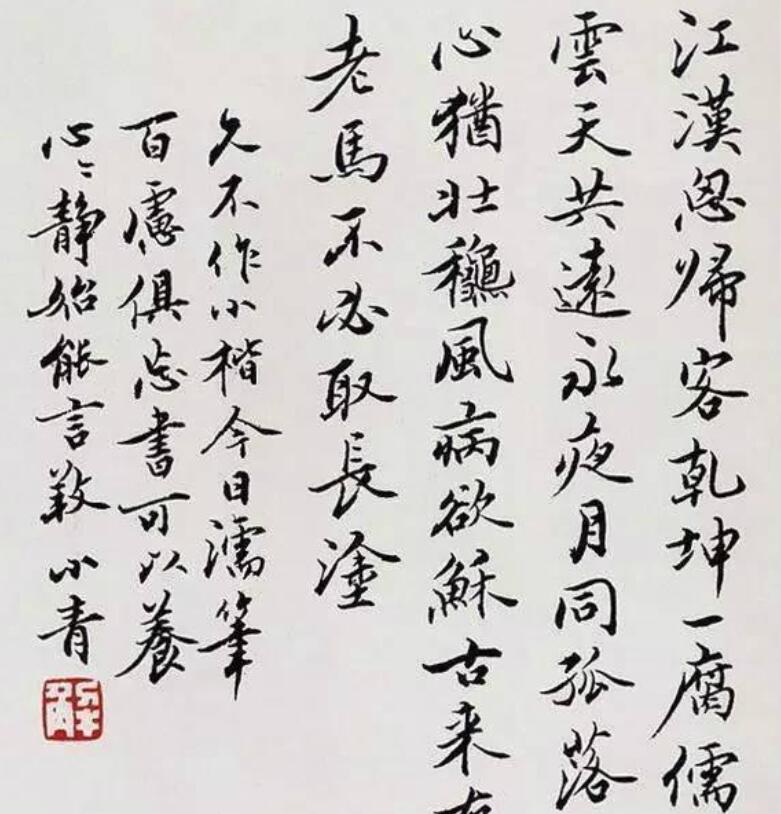 江漢恖帰客乾坤一腐儒
雲天共遠永夜月同孤落
心猶壯穐風病欲穌古来
老馬不必取長塗
久不作小楷今日濡筆
百慮俱忘書可以養
心〻靜始能言 小青
解